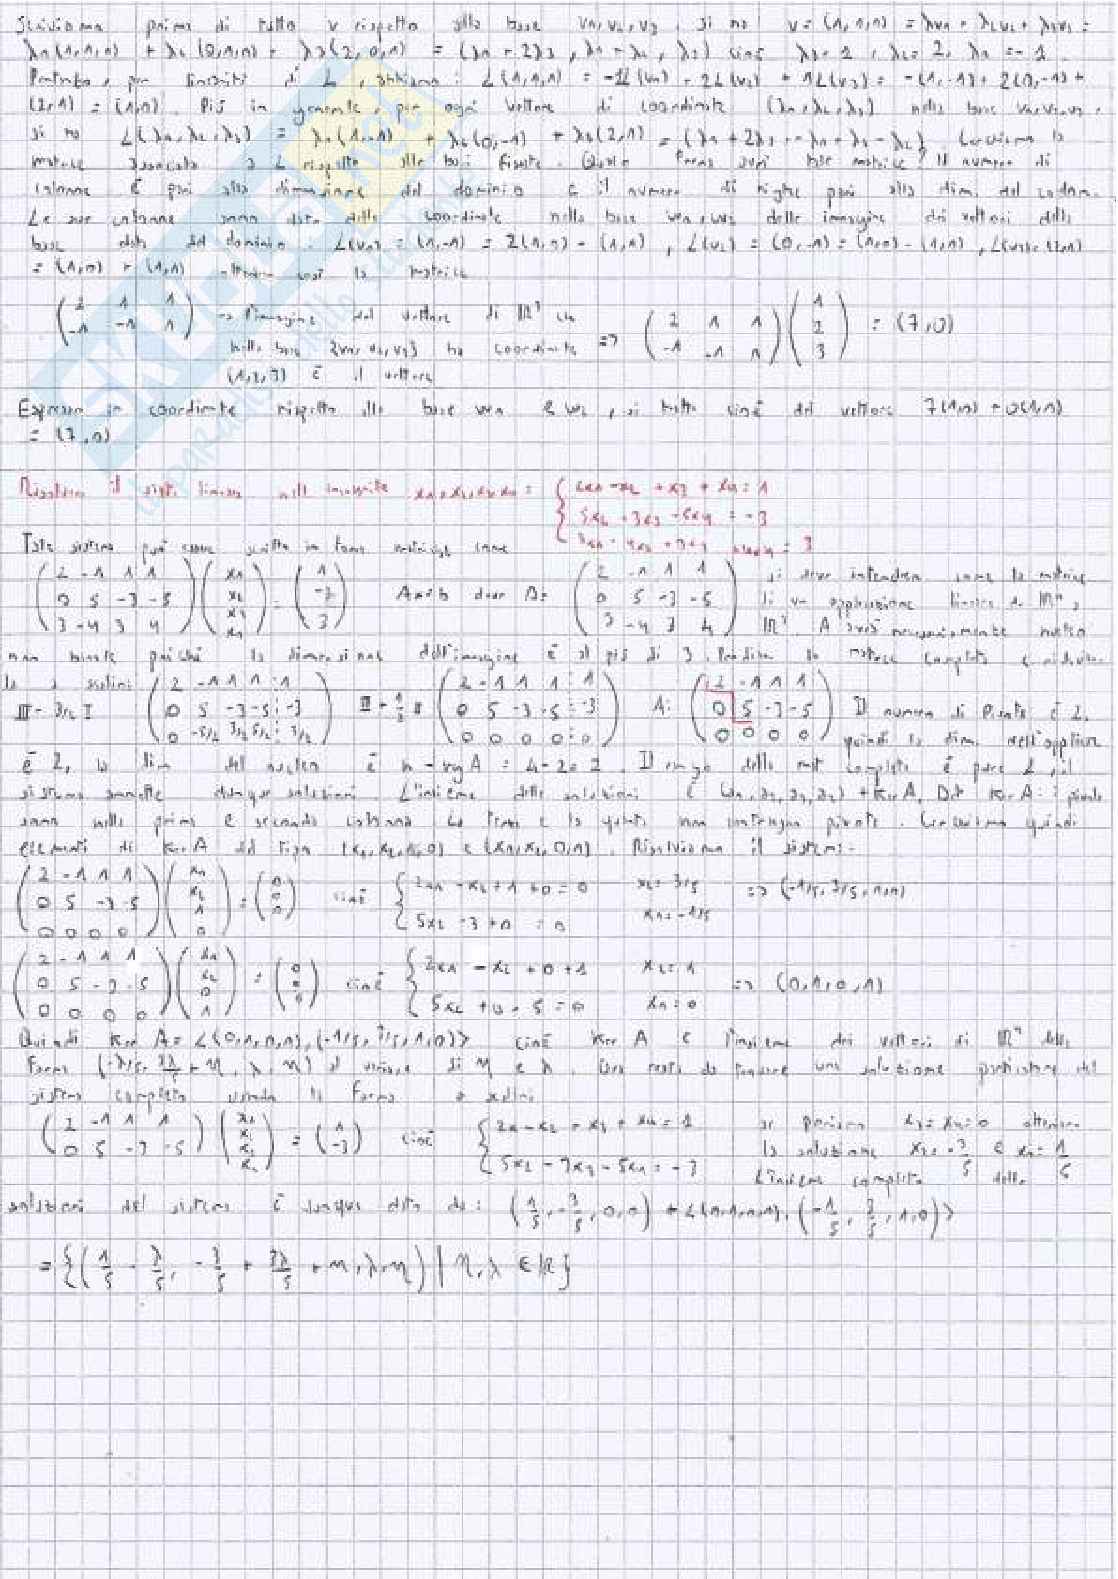 Scriviamo prima di tutto v rispetto alla base v1, v2, v3 , si ha v = (1,1,1) = λ1v1 + λ2v2 + λ3v3 =
λ1(1,1,0) + λ2(0,1,0) + λ3(2,0,1) = (λ1 + 2λ3 , λ1 + λ2 , λ3) cioè λ3 = 1 , λ2 = 2, λ1 = -1.
Pertanto, per linearità di L , abbiamo : L(1,1,1) = -1L(v1) + 2L(v2) + 1L(v3) = -(1,-1) + 2(0,-1) +
(2,1) = (1,0). Più in generale, per ogni vettore di coordinate (λ1, λ2, λ3) nella base v1, v2, v3 ,
si ha L(λ1, λ2, λ3) = λ1(1,-1) + λ2(0,-1) + λ3(2,1) = (λ1 + 2λ3 , -λ1 + λ3 - λ2). Cerchiamo la
matrice associata a L rispetto alle basi fissate. Quale forma avrà tale matrice? Il numero di
colonne è pari alla dimensione del dominio e il numero di righe pari alla dim. del codom.
Le sue colonne sono date dalle coordinate nella base w1, w2 delle immagini dei vettori della
base data del dominio : L(v1) = (1,-1) = 2(1,0) - (1,1) , L(v2) = (0,-1) = (1,0) - (1,1) , L(v3) = (2,1)
= (1,0) + (1,1) otteniamo così la matrice
( 2 1 1 ; -1 -1 1 ) -> l'immagine del vettore di R³ che nella base {v1, v2, v3} ha coordinate (1,2,3) è il vettore => ( 2 1 1 ; -1 -1 1 ) ( 1 2 3 ) = (7,0)
Espresso in coordinate rispetto alla base w1 e w2 , si tratta cioè del vettore 7(1,0) + 0(1,1)
= (7,0)
Risolvere il sist. lineare nelle incognite x1, x2, x3, x4 = { 2x1 - x2 + x3 + x4 = 1
5x2 - 3x3 - 5x4 = -3
3x1 - 4x2 + 3x3 = 3
Tale sistema può essere scritto in forma matriciale come
( 2 -1 1 1 ; 0 5 -3 -5 ; 3 -4 3 4 ) ( x1 x2 x3 x4 ) = ( 1 -3 3 ) Ax=b dove A= ( 2 -1 1 1 ; 0 5 -3 -5 ; 3 -4 3 4 ) si deve intendere come la matrice
di un'applicazione lineare da R⁴ a
R³. A avrà necessariamente nucleo
non banale poiché la dimensione dell'immagine è al più di 3. la matrice completa e
la a scalini
III - 3/2 I ( 2 -1 1 1 1 ; 0 5 -3 -5 -3 ; 0 -5/2 3/2 5/2 3/2 ) III + 1/2 II ( 2 -1 1 1 1 ; 0 5 -3 -5 -3 ; 0 0 0 0 0 ) A: ( 2 -1 1 1 ; 0 5 -3 -5 ; 0 0 0 0 ) Il numero di pivots è 2,
quindi la dim. dell'applicaz.
è 2, la dim del nucleo è n - rgA = 4-2 = 2 . Il rango della mat completa è pure 2 , il
sistema ammette dunque soluzioni. L'insieme delle soluzioni è + Ker A. Det Ker A: i pivots
sono nella prima e seconda colonna. La terza e la quarta non contengono pivots. Cerchiamo quindi
elementi di Ker A del tipo (x1, x2, 1, 0) e (x1, x2, 0, 1) . Risolviamo il sistema.
( 2 -1 1 1 ; 0 5 -3 -5 ; 0 0 0 0 ) ( x1 x2 1 0 ) = ( 0 0 0 ) cioè { 2x1 - x2 + 1 + 0 = 0 x2 = 3/5 => (-1/5, 3/5, 1, 0)
5x2 - 3 + 0 = 0 x1 = -1/5
( 2 -1 1 1 ; 0 5 -3 -5 ; 0 0 0 0 ) ( x1 x2 0 1 ) = ( 0 0 0 ) cioè { 2x1 - x2 + 0 + 1 x2 = 1 => (0,1,0,1)
5x2 + 0 - 5 = 0 x1 = 0
Quindi Ker A = L<(0,1,0,1), (-1/5, 3/5, 1, 0)> cioè Ker A è l'insieme dei vettori di R⁴ della
forma (-λ/5, 3λ/5 + η, λ, η) al variare di η e λ . Ora resta da trovare una soluzione particolare del
sistema completo usando la forma a scalini
( 2 -1 1 1 ; 0 5 -3 -5 ) ( x1 x2 x3 x4 ) = ( 1 -3 ) cioè { 2x1 - x2 + x3 + x4 = 1 se poniamo x3 = x4 = 0 otteniamo
5x2 - 3x3 - 5x4 = -3 la soluzione x2 = -3/5 e x1 = 1/5
L'insieme completo delle
soluzioni del sistema è dunque dato da : (1/5, -3/5, 0, 0) + L<(0,1,0,1), (-1/5, 3/5, 1, 0)>
= {(1/5 - λ/5, -3/5 + 3λ/5 + η, λ, η) | η, λ ∈ R}